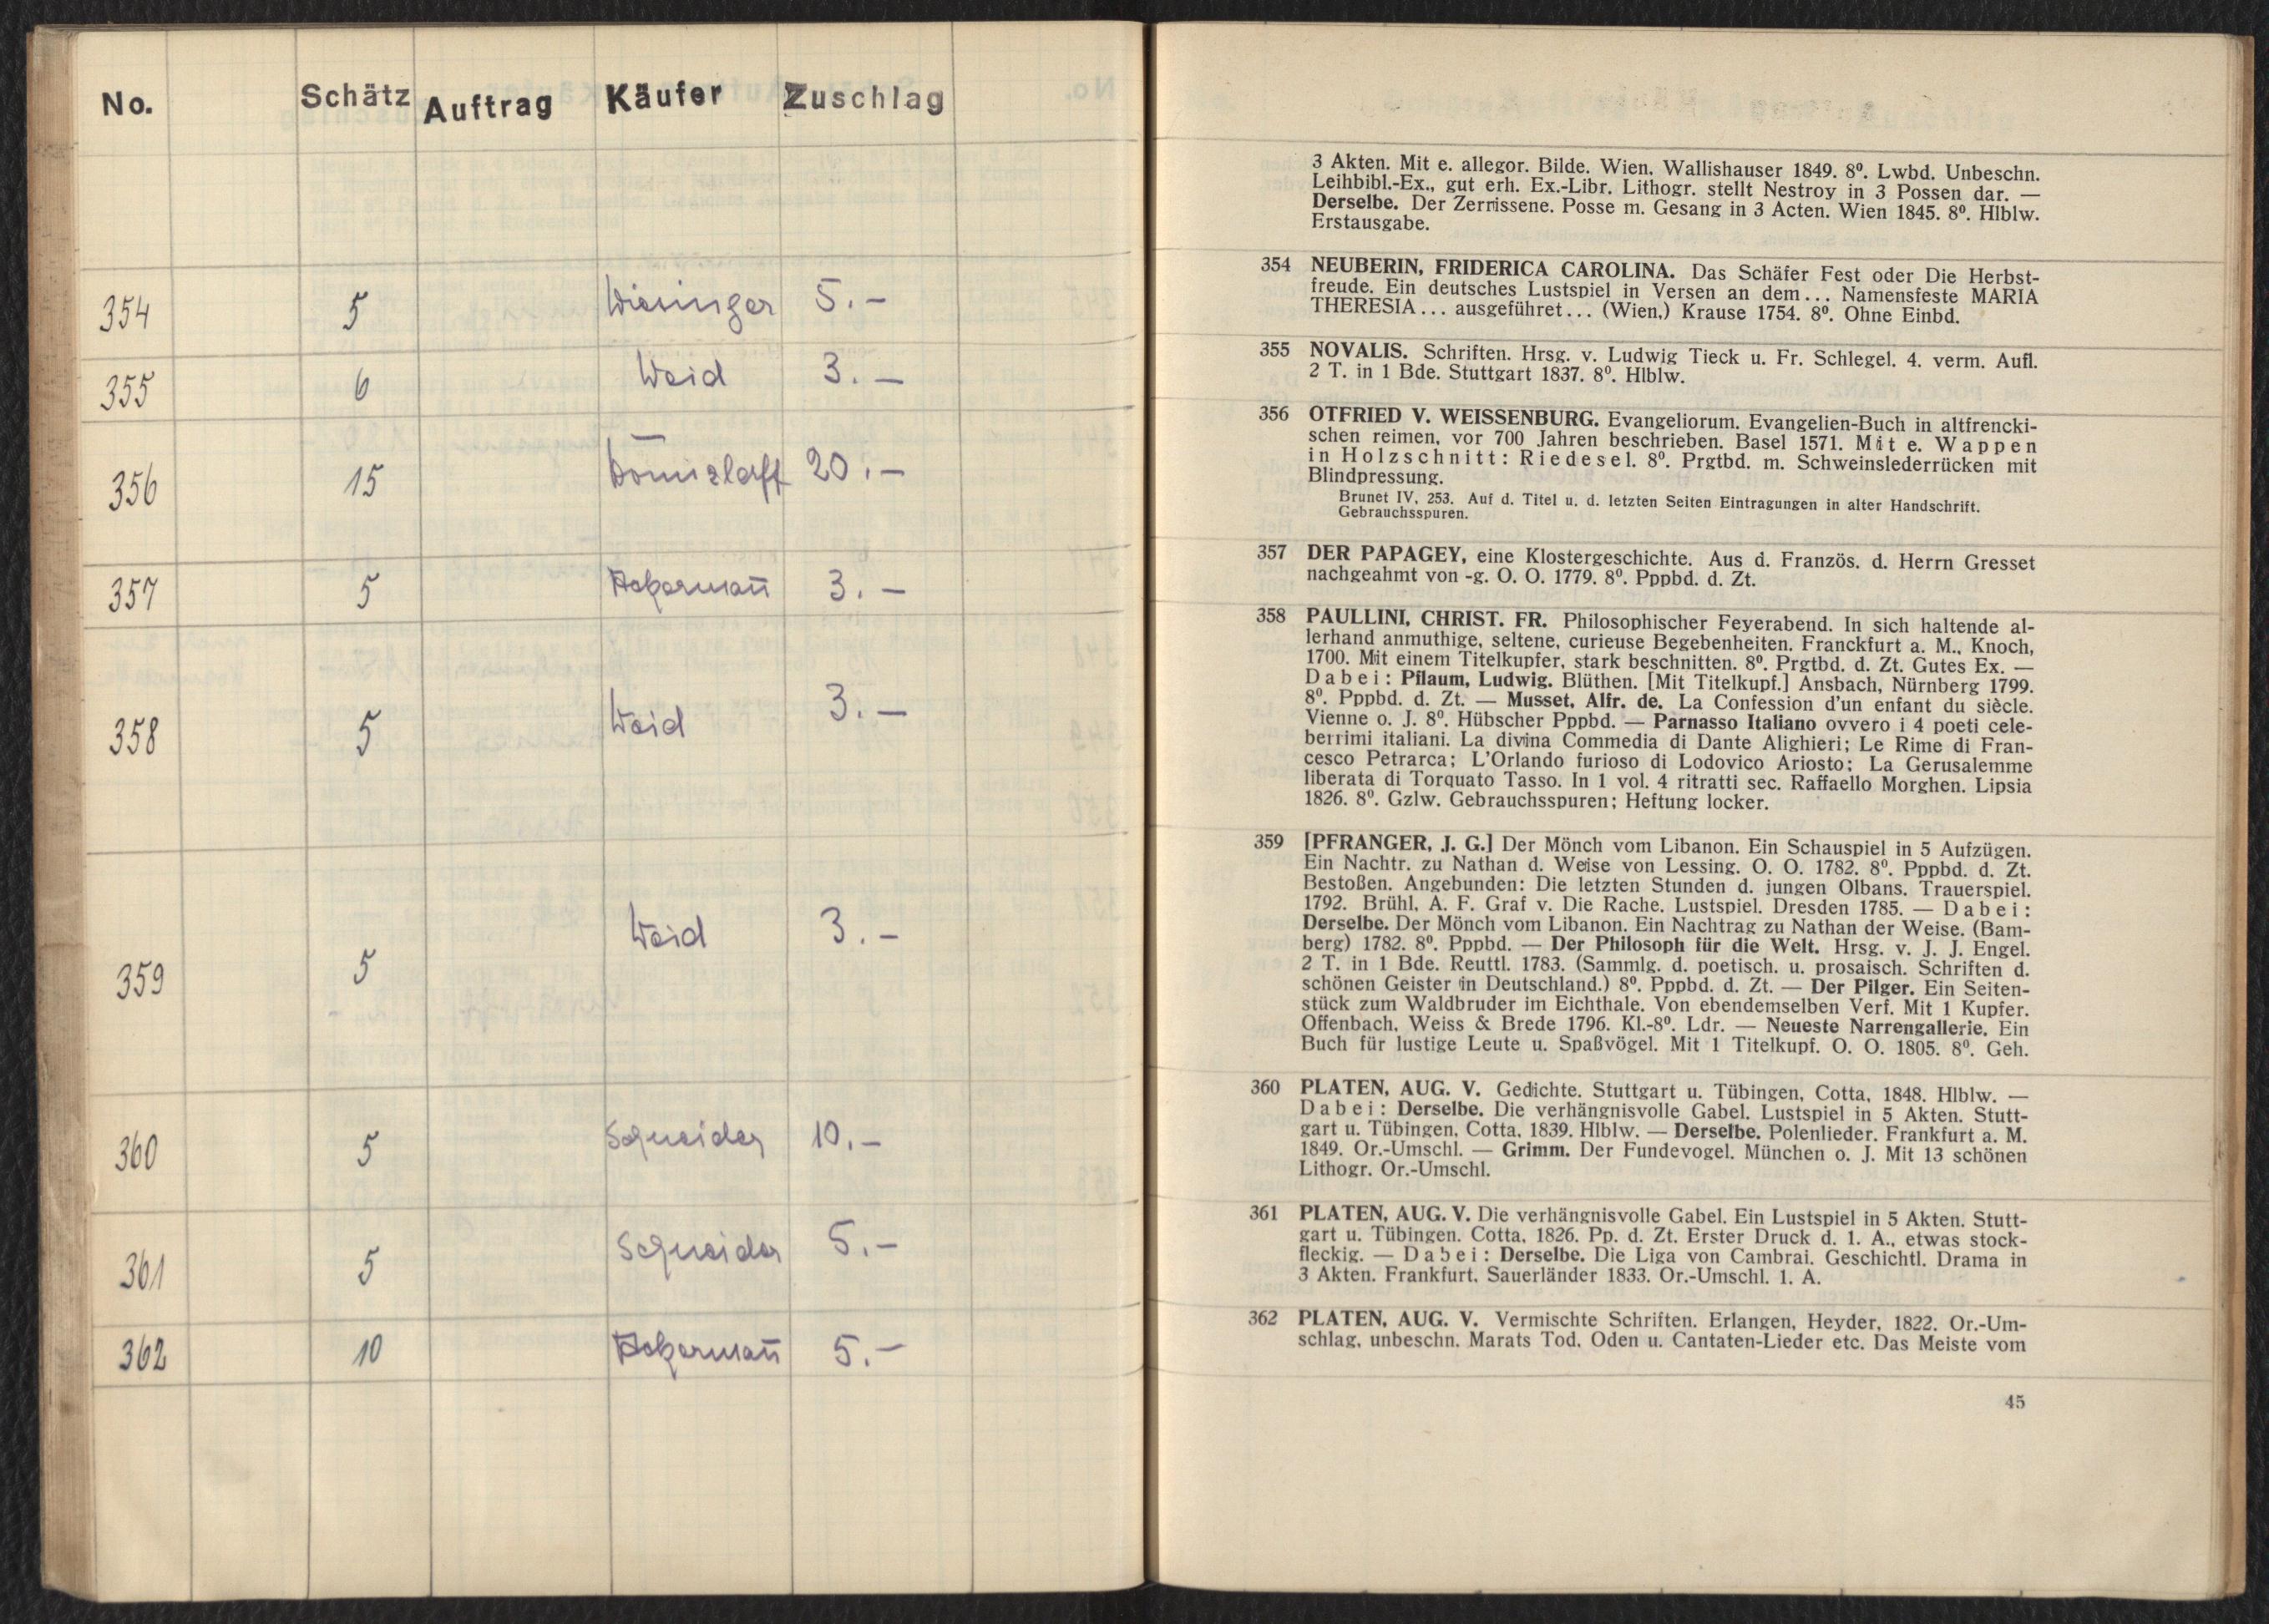 No. Schätz Auftrag Käufer Zuschlag
354 5 Wiesinger 5.–
355 6 Weid 3.–
356 15 20.–
357 5 3.–
358 5 Weid 3.–
359 5 Weid 3.–
360 5 Schneider 10.–
361 5 Schneider 5.–
362 10 5.–
3 Akten. Mit e. allegor. Bilde. Wien, Wallishauser 1849. 8⁰. Lwbd. Unbeschn.
Leihbibl.-Ex., gut erh. Ex.-Libr. Lithogr. stellt Nestroy in 3 Possen dar. —
Derselbe. Der Zerrissene. Posse m. Gesang in 3 Acten. Wien 1845. 8⁰. Hlblw.
Erstausgabe.
354 NEUBERIN, FRIDERICA CAROLINA. Das Schäfer Fest oder Die Herbst-
freude. Ein deutsches Lustspiel in Versen an dem... Namensfeste MARIA
THERESIA... ausgeführet... (Wien,) Krause 1754. 8⁰. Ohne Einbd.
355 NOVALIS. Schriften. Hrsg. v. Ludwig Tieck u. Fr. Schlegel. 4. verm. Aufl.
2 T. in 1 Bde. Stuttgart 1837. 8⁰. Hlblw.
356 OTFRIED V. WEISSENBURG. Evangeliorum. Evangelien-Buch in altfrencki-
schen reimen, vor 700 Jahren beschrieben. Basel 1571. Mit e. Wappen
in Holzschnitt: Riedesel. 8⁰. Prgtbd. m. Schweinslederrücken mit
Blindpressung.
Brunet IV, 253. Auf d. Titel u. d. letzten Seiten Eintragungen in alter Handschrift.
Gebrauchsspuren.
357 DER PAPAGEY, eine Klostergeschichte. Aus d. Französ. d. Herrn Gresset
nachgeahmt von -g. O. O. 1779. 8⁰. Pppbd. d. Zt.
358 PAULLINI, CHRIST. FR. Philosophischer Feyerabend. In sich haltende al-
lerhand anmuthige, seltene, curieuse Begebenheiten. Franckfurt a. M., Knoch,
1700. Mit einem Titelkupfer, stark beschnitten. 8⁰. Prgtbd. d. Zt. Gutes Ex. —
Dabei: Pflaum, Ludwig. Blüthen. [Mit Titelkupf.] Ansbach, Nürnberg 1799.
8⁰. Pppbd. d. Zt. — Musset, Alfr. de. La Confession d'un enfant du siècle.
Vienne o. J. 8⁰. Hübscher Pppbd. — Parnasso Italiano ovvero i 4 poeti cele-
berrimi italiani. La divina Commedia di Dante Alighieri; Le Rime di Fran-
cesco Petrarca; L'Orlando furioso di Lodovico Ariosto; La Gerusalemme
liberata di Torquato Tasso. In 1 vol. 4 ritratti sec. Raffaello Morghen. Lipsia
1826. 8⁰. Gzlw. Gebrauchsspuren; Heftung locker.
359 [PFRANGER, J. G.] Der Mönch vom Libanon. Ein Schauspiel in 5 Aufzügen.
Ein Nachtr. zu Nathan d. Weise von Lessing. O. O. 1782. 8⁰. Pppbd. d. Zt.
Bestoßen. Angebunden: Die letzten Stunden d. jungen Olbans. Trauerspiel.
1792. Brühl, A. F. Graf v. Die Rache. Lustspiel. Dresden 1785. — Dabei:
Derselbe. Der Mönch vom Libanon. Ein Nachtrag zu Nathan der Weise. (Bam-
berg) 1782. 8⁰. Pppbd. — Der Philosoph für die Welt. Hrsg. v. J. J. Engel.
2 T. in 1 Bde. Reuttl. 1783. (Sammlg. d. poetisch. u. prosaisch. Schriften d.
schönen Geister in Deutschland.) 8⁰. Pppbd. d. Zt. — Der Pilger. Ein Seiten-
stück zum Waldbruder im Eichthale. Von ebendemselben Verf. Mit 1 Kupfer.
Offenbach, Weiss & Brede 1796. Kl.-8⁰. Ldr. — Neueste Narrengallerie. Ein
Buch für lustige Leute u. Spaßvögel. Mit 1 Titelkupf. O. O. 1805. 8⁰. Geh.
360 PLATEN, AUG. V. Gedichte. Stuttgart u. Tübingen, Cotta, 1848. Hlblw. —
Dabei: Derselbe. Die verhängnisvolle Gabel. Lustspiel in 5 Akten. Stutt-
gart u. Tübingen, Cotta, 1839. Hlblw. — Derselbe. Polenlieder. Frankfurt a. M.
1849. Or.-Umschl. — Grimm. Der Fundevogel. München o. J. Mit 13 schönen
Lithogr. Or.-Umschl.
361 PLATEN, AUG. V. Die verhängnisvolle Gabel. Ein Lustspiel in 5 Akten. Stutt-
gart u. Tübingen. Cotta, 1826. Pp. d. Zt. Erster Druck d. 1. A., etwas stock-
fleckig. — Dabei: Derselbe. Die Liga von Cambrai. Geschichtl. Drama in
3 Akten. Frankfurt, Sauerländer 1833. Or.-Umschl. 1. A.
362 PLATEN, AUG. V. Vermischte Schriften. Erlangen, Heyder, 1822. Or.-Um-
schlag, unbeschn. Marats Tod. Oden u. Cantaten-Lieder etc. Das Meiste vom
45